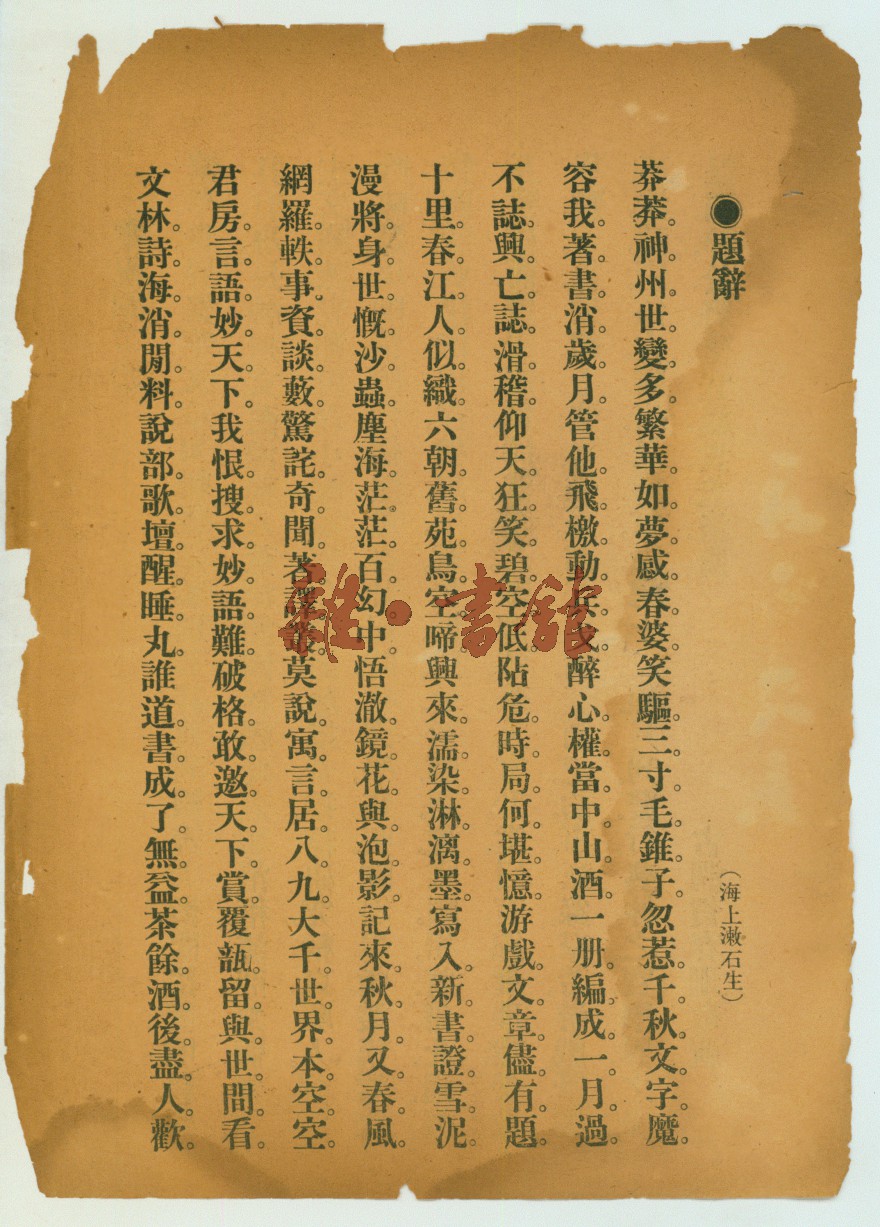 ●題辭
(海上漱石生)
莽莽神州世變多繁華如夢感春婆笑驅三寸毛錐子忽惹千秋文字魔
容我著書消歲月管他飛檄動兵戈醉心權當中山酒一册編成一月過
不誌興亡誌滑稽仰天狂笑碧空低阽危時局何堪憶游戲文章儘有題
十里春江人似織六朝舊苑鳥空啼興來濡染淋漓墨寫入新書證雪泥
漫將身世慨沙蟲塵海茫茫百幻中悟澈鏡花與泡影記來秋月又春風
網羅軼事資談藪驚詫奇聞著譯叢莫說寓言居八九大千世界本空空
君房言語妙天下我恨搜求妙語難破格敢邀天下賞覆瓿留與世間看
文林詩海消閒料說部歌壇醒睡丸誰道書成了無益茶餘酒後盡人歡
雜·書館